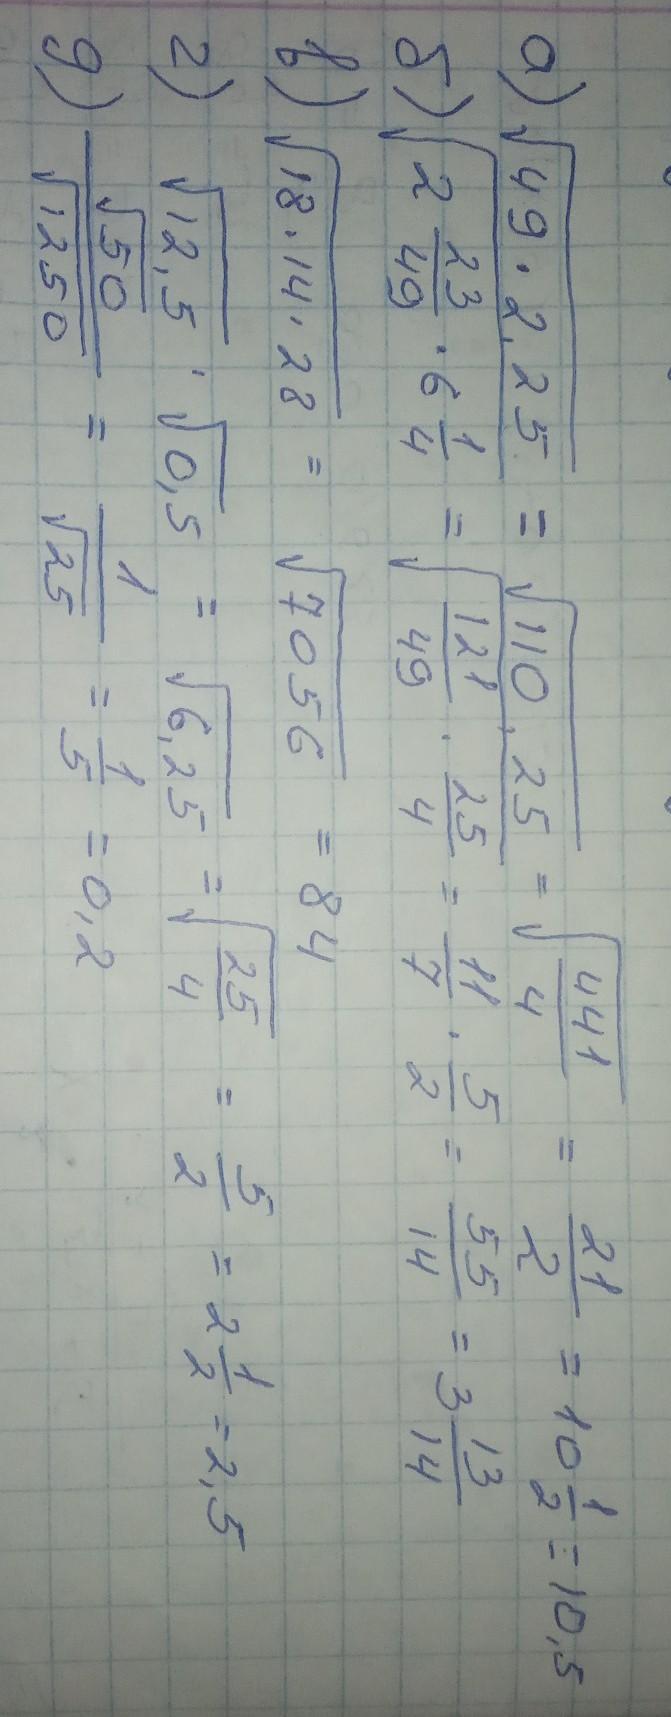 а) √49·2,25 = √110,25 = √441/4 = 21/2 = 10 1/2 = 10,5
б) √2 23/49 · 6 1/4 = √121/49 · 25/4 = 11/7 · 5/2 = 55/14 = 3 13/14
в) √18·14·28 = √7056 = 84
г) √12,5 · √0,5 = √6,25 = √25/4 = 5/2 = 2 1/2 = 2,5
д) √50/√1250 = 1/√25 = 1/5 = 0,2